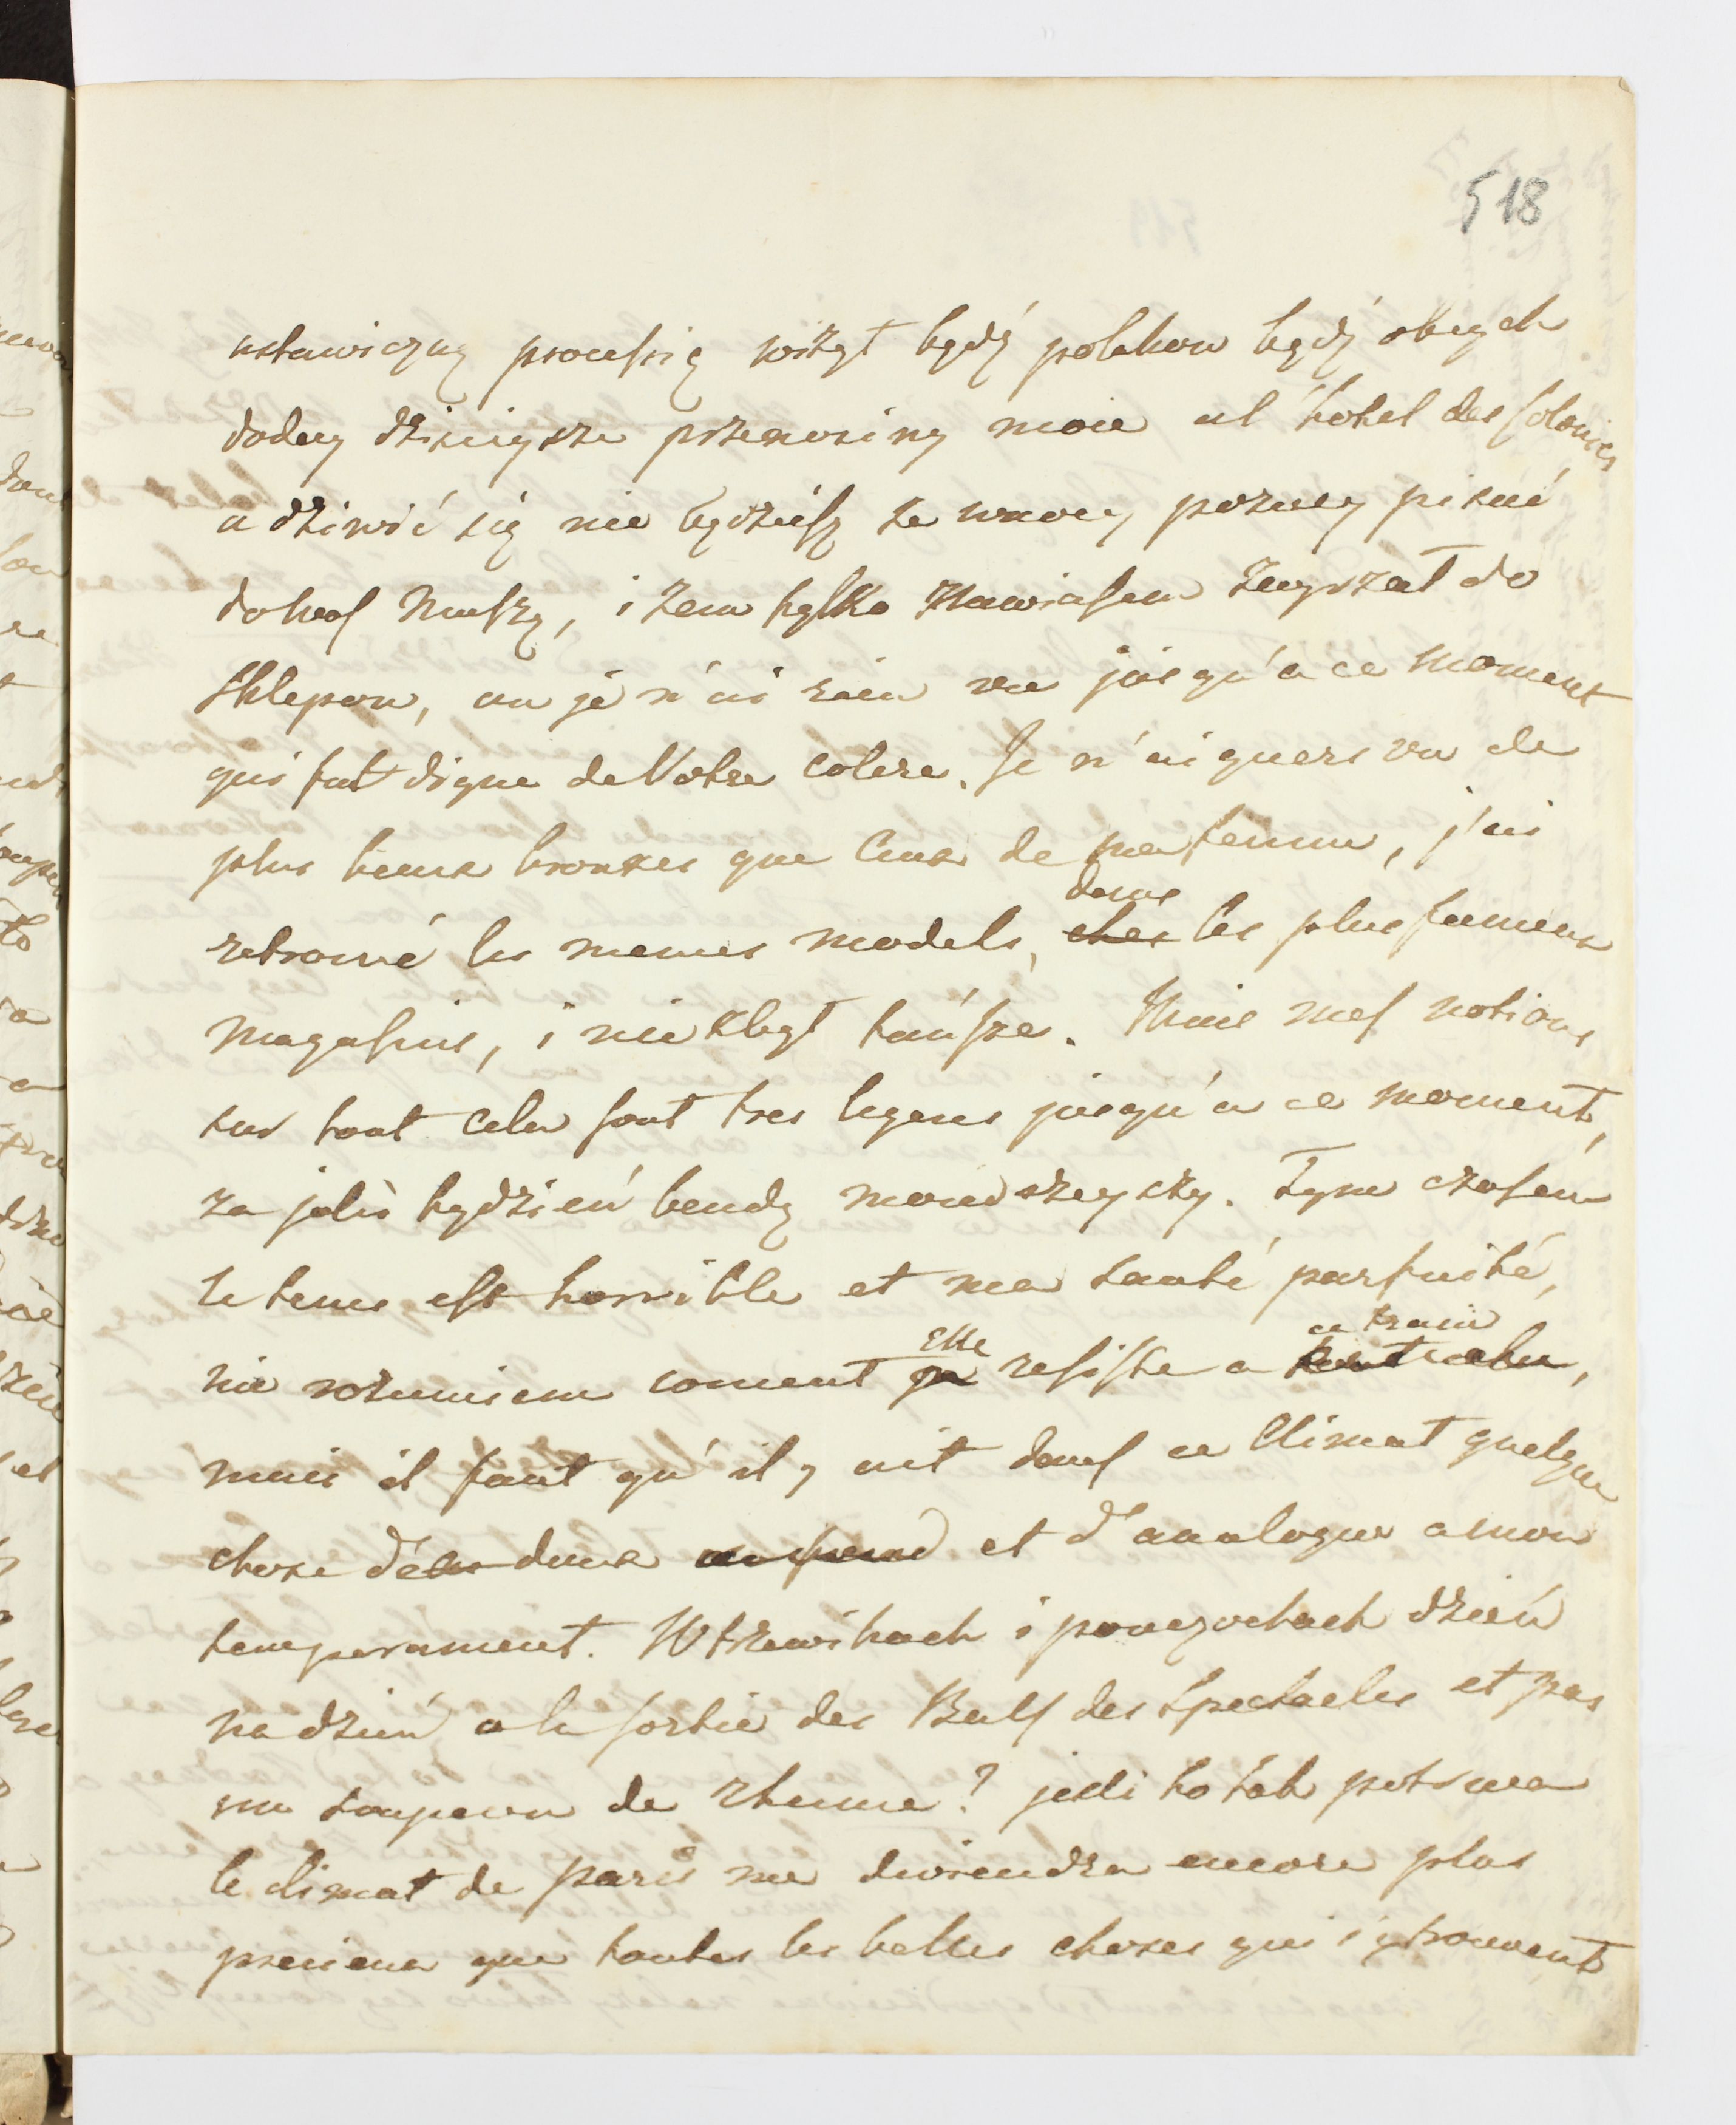 518
ustawiczną processię wizyt bądź polakow bądź obcych
doday dzisieysze przenosiny moie al hotel des Colonies
a dziwić się nie będziesz ze w nocy pozney pisać
do was Muszę, i zem tylko Nawiasem Zayrzał do
Sklepow, ou je n'ai rien vu jusqu'a ce moment
qui fut digne de Votre colere. Je n'ai guere vu de
plus beaux bronzes que Ceux de ma femme, j'ai
retrouvé les memes models, dans les plus fameux
Magasins, i nie zbyt tańsze. Mais mes notions
sur tout cela sont tres legeres jusqu'a ce moment,
za jakis tydzień bendę mondrzeyszy. Tym czasem
le tems est horrible et ma santé parfaite,
nie rozumiem coment Elle resiste a ce train,
mais il faut qu'il y ait dans ce Climat quelque
chose de doux et d'analogue a mon
temperament. W trzewikach i ponczochach dzień
na dzień a la sortie des Bals des Spectacles et pas
un soupcon de Rhume? jesli to tak potrwa
le climat de Paris me deviendra encore plus
precieux que toutes les belles choses qui s'y trouvent